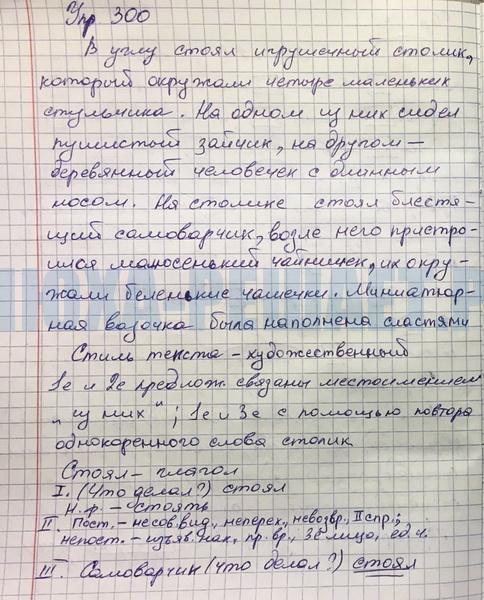 Упр 300
В углу стоял игрушечный столик,
который окружали четыре маленьких
стульчика. На одном из них сидел
пушистый зайчик, на другом –
деревянный человечек с длинным
носом. На столике стоял блестя-
щий самоварчик, возле него пристро-
ился малюсенький чайничек, их окру-
жали беленькие чашечки. Миниатюр-
ная вазочка была наполнена сластями
Стиль текста – художественный
1е и 2е предлож. связаны местоимением
"из них"; 1е и 3е с помощью повтора
однокоренного слова столик
Стоял – глагол
I. (Что делал?) стоял
Н.ф. – стоять
II. Пост. – несов. вид, неперех., невозвр., II спр.;
непост. – изъяв. нак., пр. вр., 3е лицо, ед. ч.
III. Самоварчик (что делал?) стоял